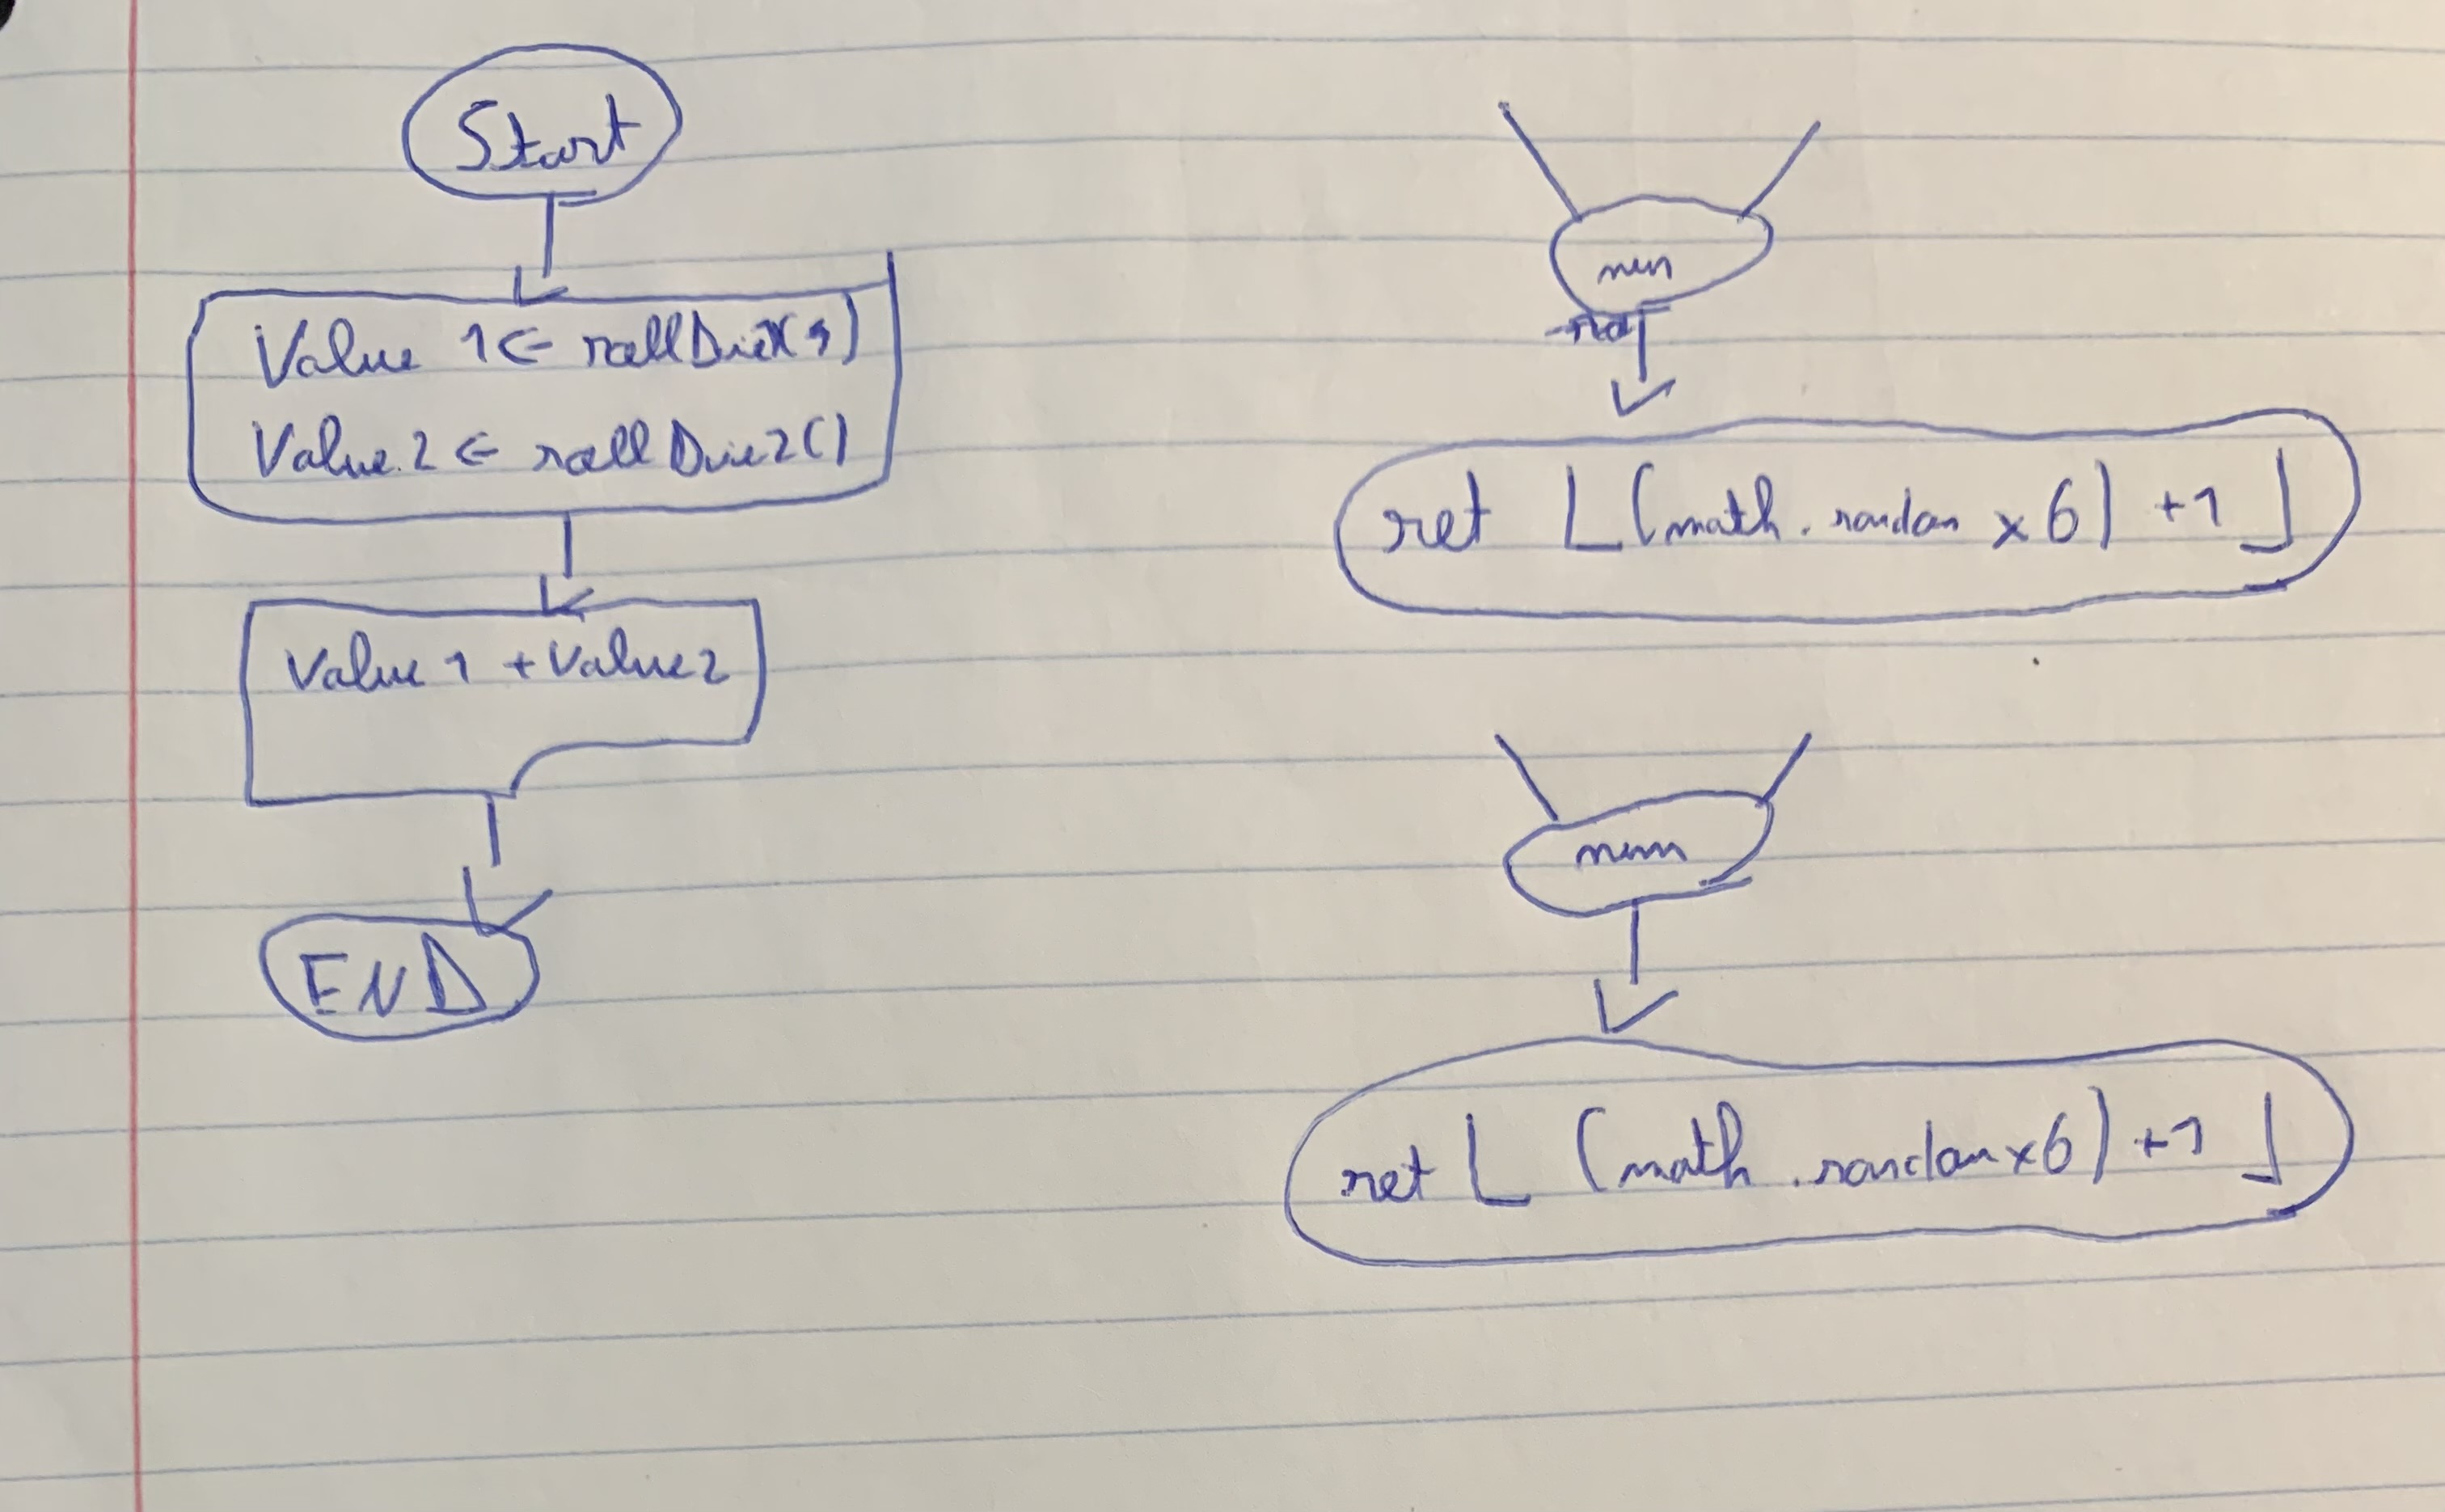 Start
Value 1 ← rollDie
Value 2 ← rollDie2()
Value 1 + Value 2
END
ret ⌊(math.random × 6) +1⌋
num
ret ⌊(math.random × 6) +1⌋